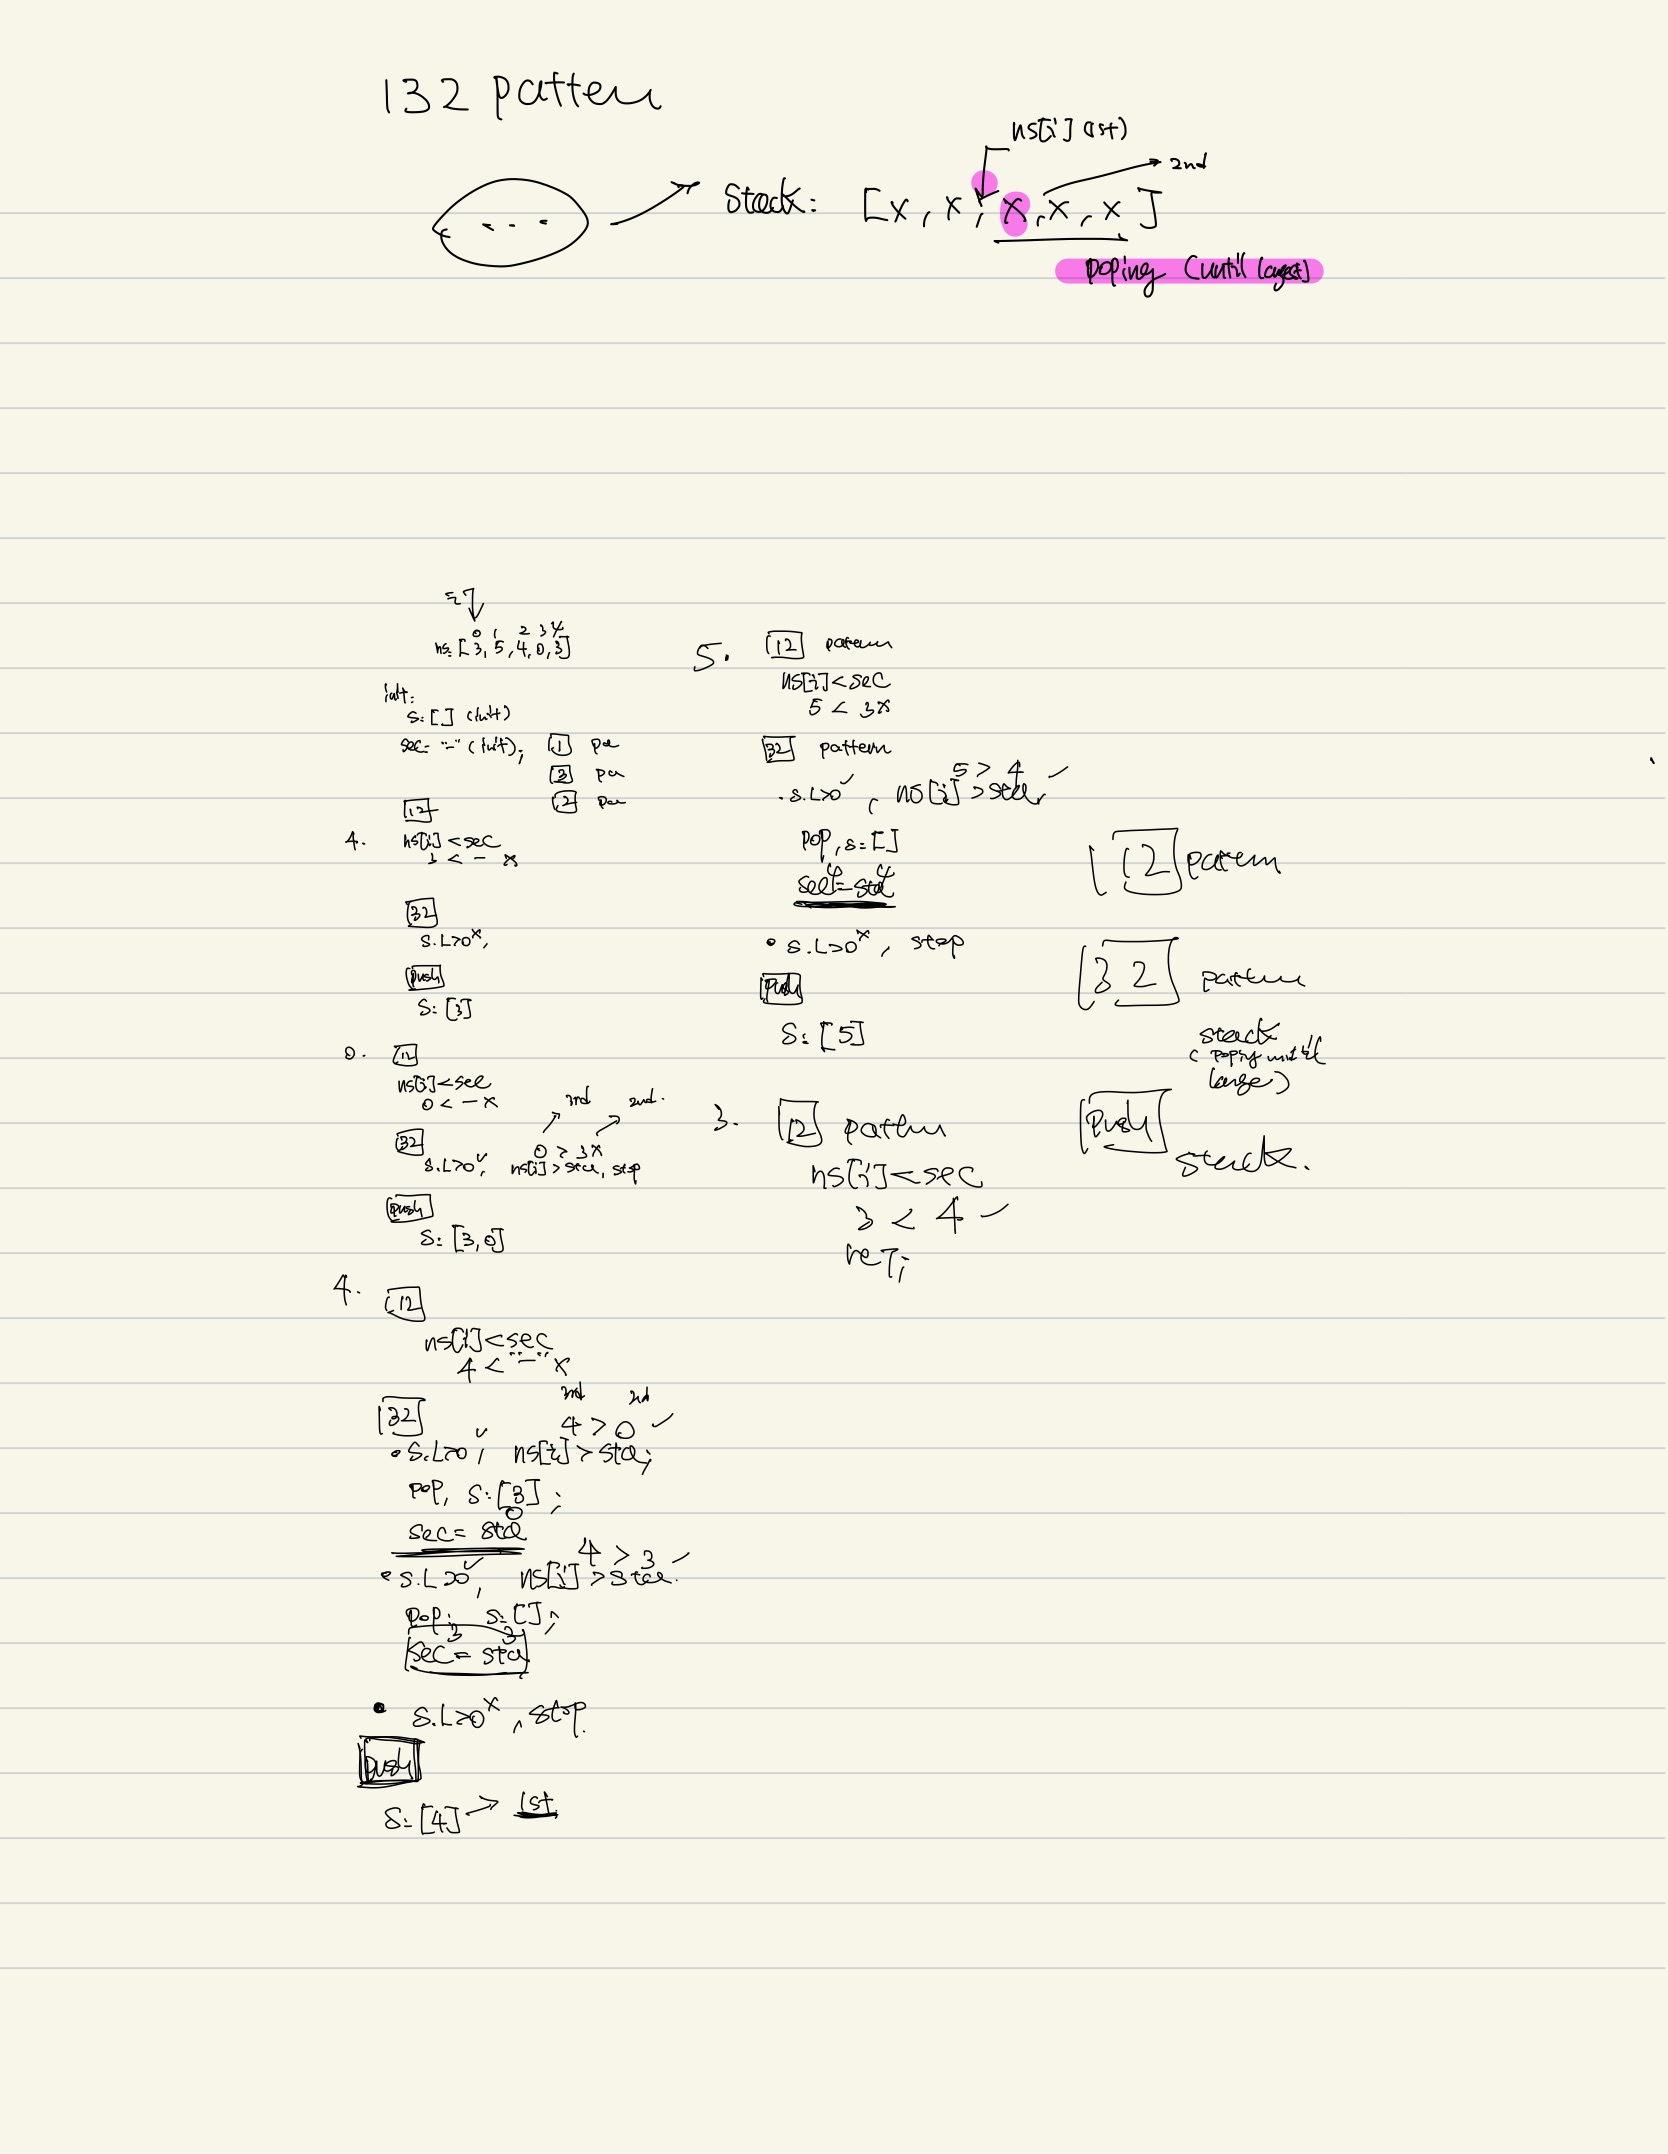 132 pattern
ns[i] (1st)
2nd
Stack: [x, x, x, x, x]
poping (until largest)
0 1 2 3 4
ns: [3, 5, 4, 0, 3]
init:
S: [] (init)
sec: "-" (init);
1
3
2
12
4. ns[i] < sec
3 < - x
32
S.L>0 x,
push
S: [3]
0. 12
ns[i] < sec
0 < - x
3rd 2nd.
32
0 > 3 x
S.L>0 ✓, ns[i] > sta, stop
push
S: [3, 0]
4. 12
ns[i] < sec
4 < "-" x
3rd 2nd
32
4 > 0 ✓
• S.L>0 ✓, ns[i] > sta;
pop, S: [3];
0
sec = sta
4 > 3 ✓
• S.L>0 ✓, ns[i] > sta.
pop; S: [];
3 3
sec = sta
• S.L>0 x, stop.
push
S: [4] → 1st
5. 12 pattern
ns[i] < sec
5 < 3 x
32 pattern
5 > 4 ✓
. S.L>0 ✓, ns[i] > sta,
pop, S: []
4 4
sec = sta
• S.L>0 x, stop
push
S: [5]
3. 12 pattern
ns[i] < sec
3 < 4 ✓
ret;
12 pattern
32 pattern
stack
(poping until
large)
push
stack.